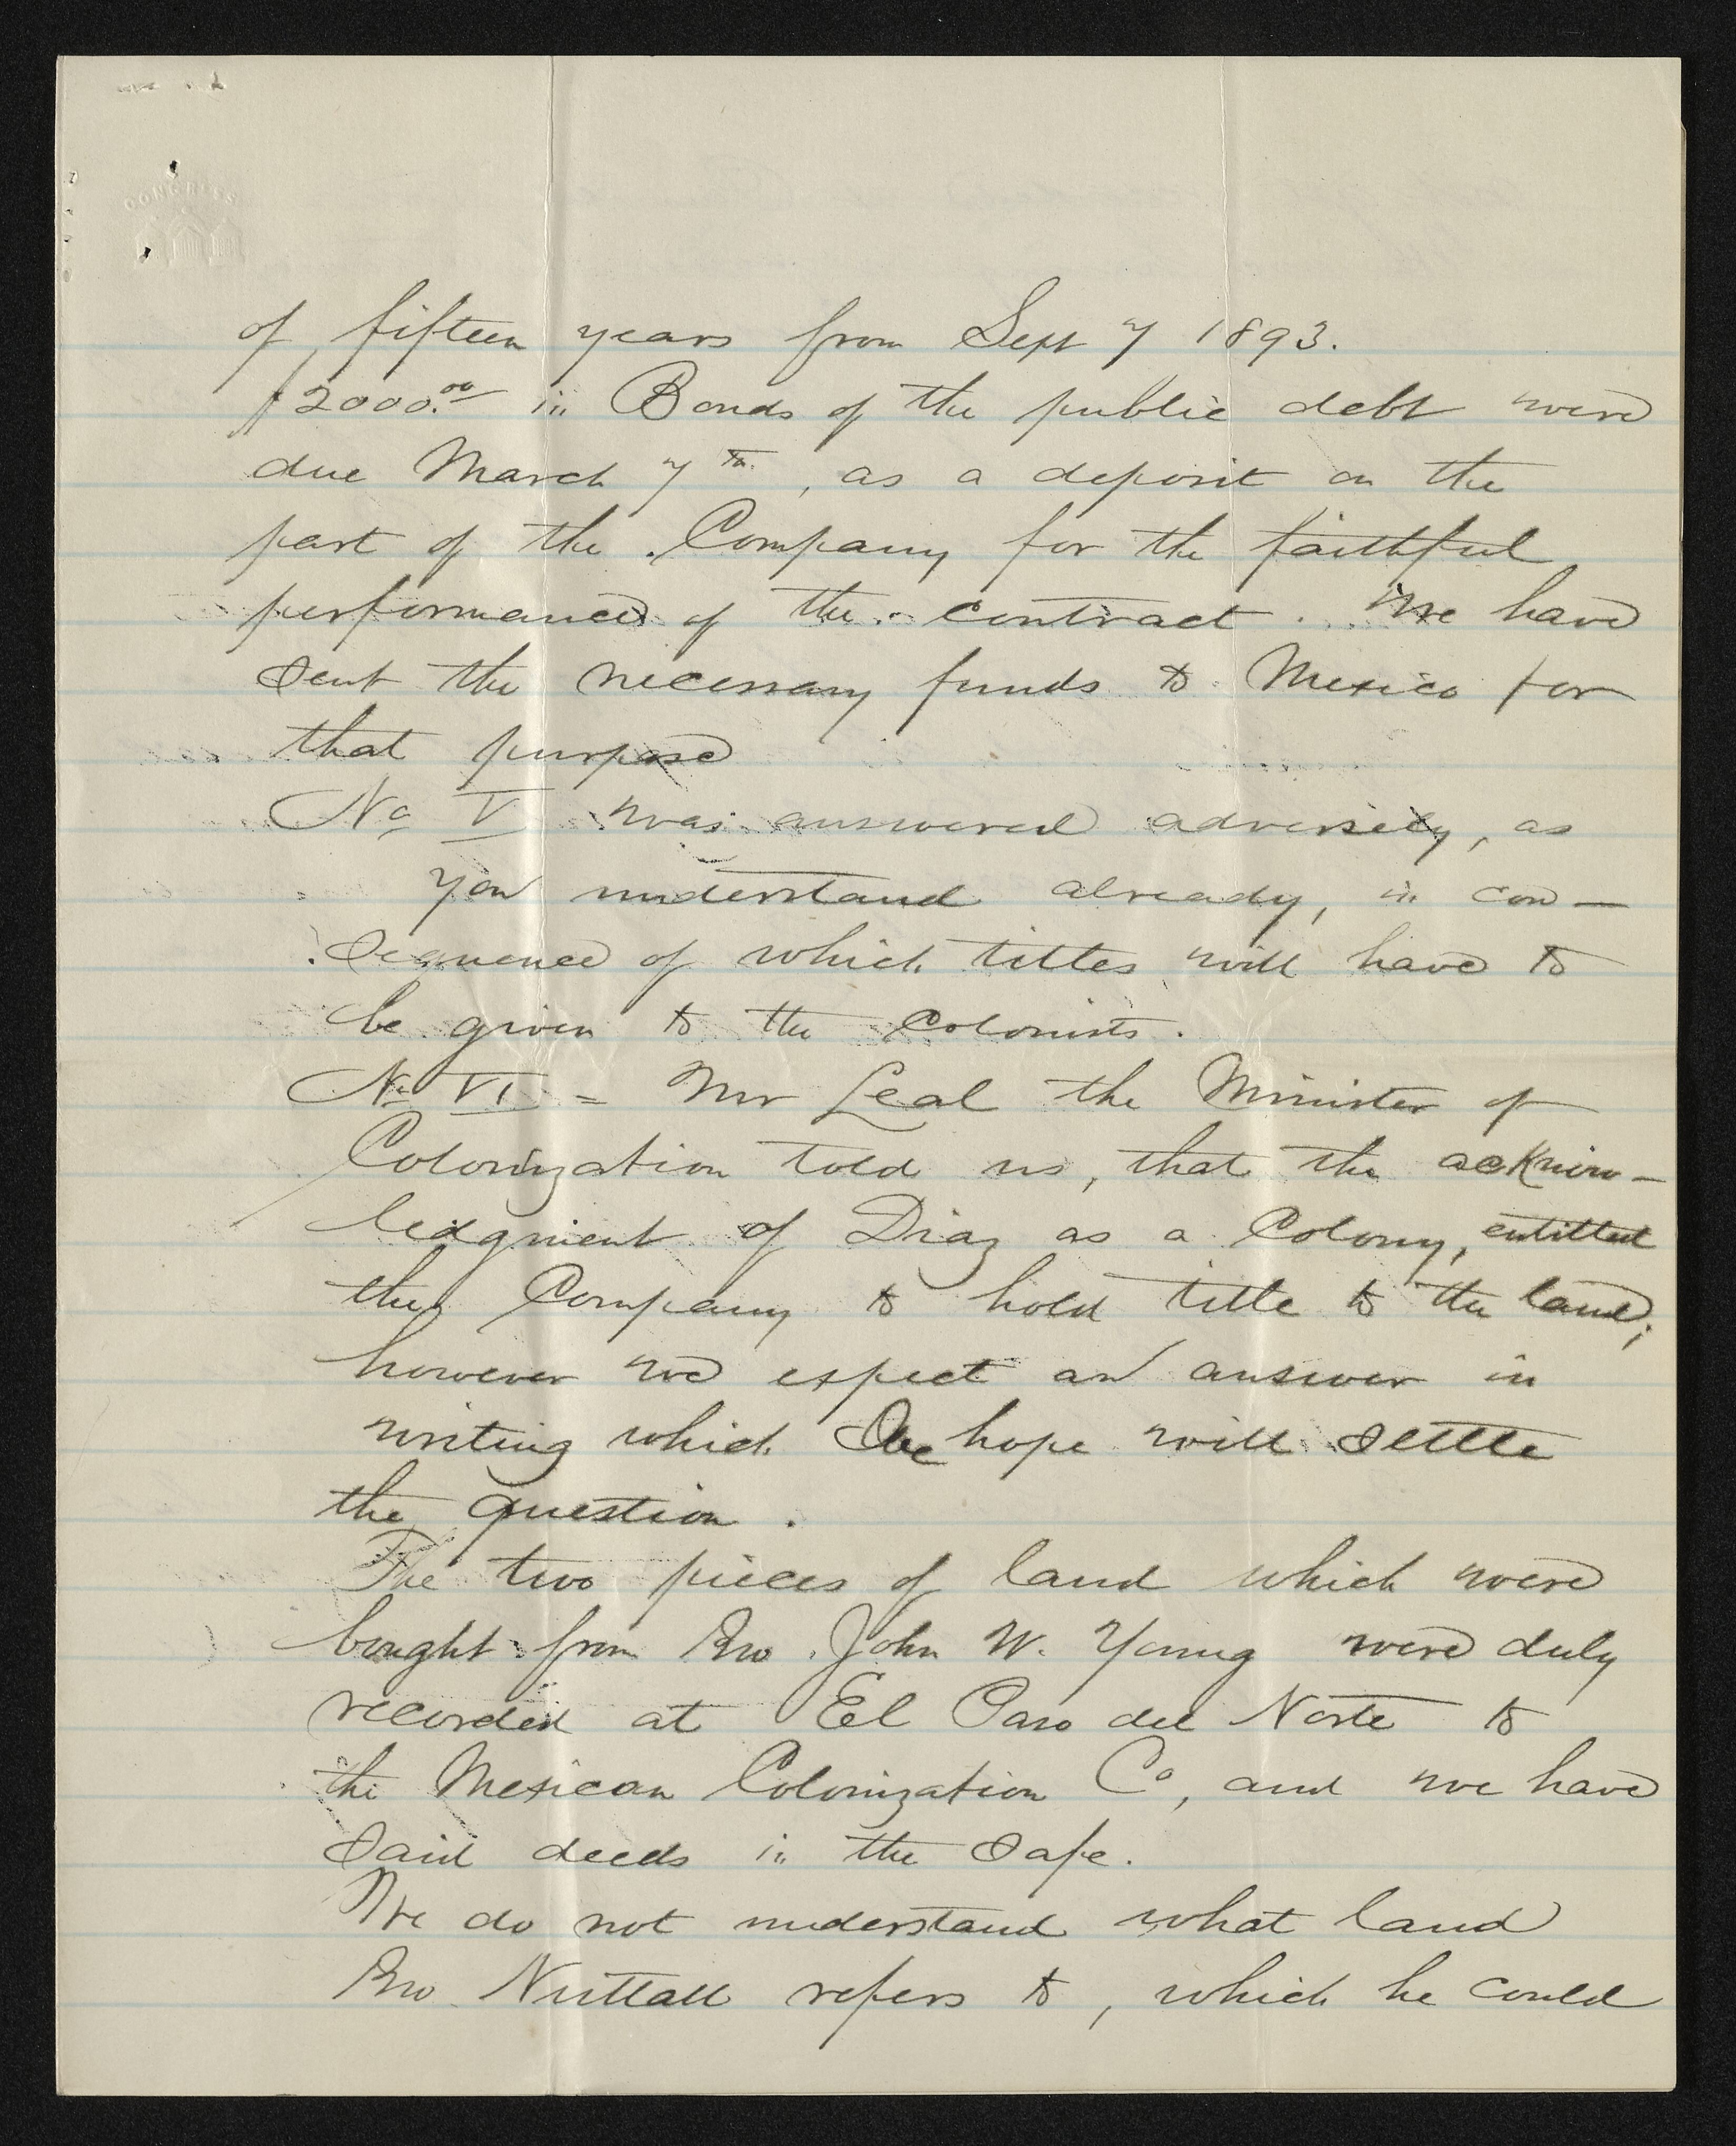 CONGRESS
of fifteen years from Sept 7 1893.
$2000.00 in Bonds of the public debt were
due March 7th, as a deposit on the
part of the Company for the faithful
performance of the contract. We have
sent the necessary funds to Mexico for
that purpose
No V was answered adversely, as
you understand already, in con-
sequence of which titles will have to
be given to the Colonists.
No VI = Mr Leal the Minister of
Colonization told us, that the acknow-
ledgment of Diaz as a Colony, entitled
the Company to hold title to the land;
however we expect an answer in
writing which we hope will settle
the question.
The two pieces of land which were
bought from Bro. John W. Young were duly
recorded at El Paso del Norte to
the Mexican Colonization Co, and we have
said deeds in the safe.
We do not understand what land
Bro. Nuttall refers to, which he could